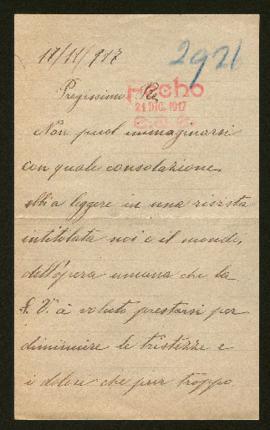 11/11/917
2921
Pregissimo Re
Hecho
21 DIC. 1917
Non puol immaginarsi
con quale consolazione
ebbi a leggere in una rivista
intitolata noi e il mondo,
dell'opera umana che la
S. V. à voluto prestarsi per
diminuire le tristezze e
i dolori che pur troppo